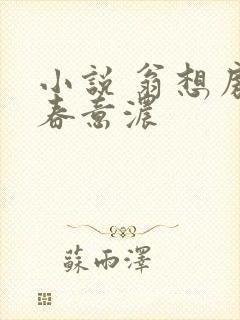 小説 翁想
春意濃
蘇雨澤